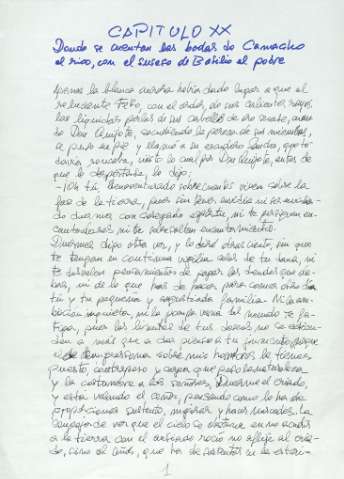 CAPITULO XX
Donde se cuentan las bodas de Camacho
el rico, con el suceso de Basilio el pobre
Apenas la blanca aurora había dado lugar a que el
reluciente Febo, con el ardor de sus calientes rayos,
las líquidas perlas de sus cabellos de oro enjugase, cuando
Don Quijote, sacudiendo la pereza de sus miembros,
se puso en pie y llamó a su escudero Sancho, que to-
davía roncaba; visto lo cual por Don Quijote, antes de
que lo despertase, le dijo:
-¡Oh tú, bienaventurado sobre cuantos viven sobre la
faz de la tierra, pues sin tener envidia ni ser envidia-
do duermes con sosegado espíritu, ni te persiguen en-
cantadores ni te sobresaltan encantamientos!
Duermes, digo otra vez, y lo diré otras ciento, sin que
te tengan en continua vigilia celos de tu dama, ni
te desvelen pensamientos de pagar las deudas que de-
bas, ni de lo que has de hacer para comer otro día
tú y tu pequeña y angustiada familia. Ni la am-
bición inquieta, ni la pompa vana del mundo te fa-
tiga, pues los límites de tus deseos no se extien-
den a más que a dar pienso a tu jumento, porque
el de tu persona sobre mis hombros le tienes
puesto, contrapeso y carga que puso la naturaleza
y la costumbre a los señores. Duerme el criado,
y está velando el señor, pensando cómo le ha de
sustentar, mejorar y hacer mercedes. La
congoja de ver que el cielo se
a la tierra con el rocío no aflige al cria-
do, sino al señor, que ha de sustentar en la esteri-
1